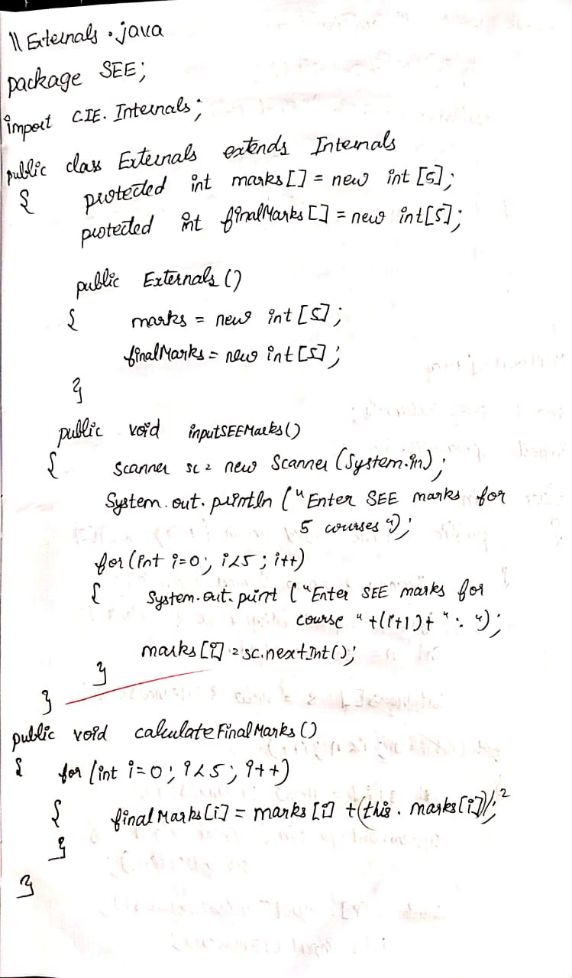 \\ Externals.java
package SEE;
import CIE.Internals;
public class Externals extends Internals
{ protected int marks[] = new int[5];
protected int finalMarks[] = new int[5];
public Externals()
{ marks = new int[5];
finalMarks = new int[5];
}
public void inputSEEMarks()
{ Scanner sc = new Scanner(System.in);
System.out.println("Enter SEE marks for
5 courses");
for(int i=0; i<5; i++)
{ System.out.print("Enter SEE marks for
course "+(i+1)+": ");
marks[i] = sc.nextInt();
}
}
public void calculateFinalMarks()
{ for(int i=0; i<5; i++)
{ finalMarks[i] = marks[i] + (this.marks[i])/2;
}
}